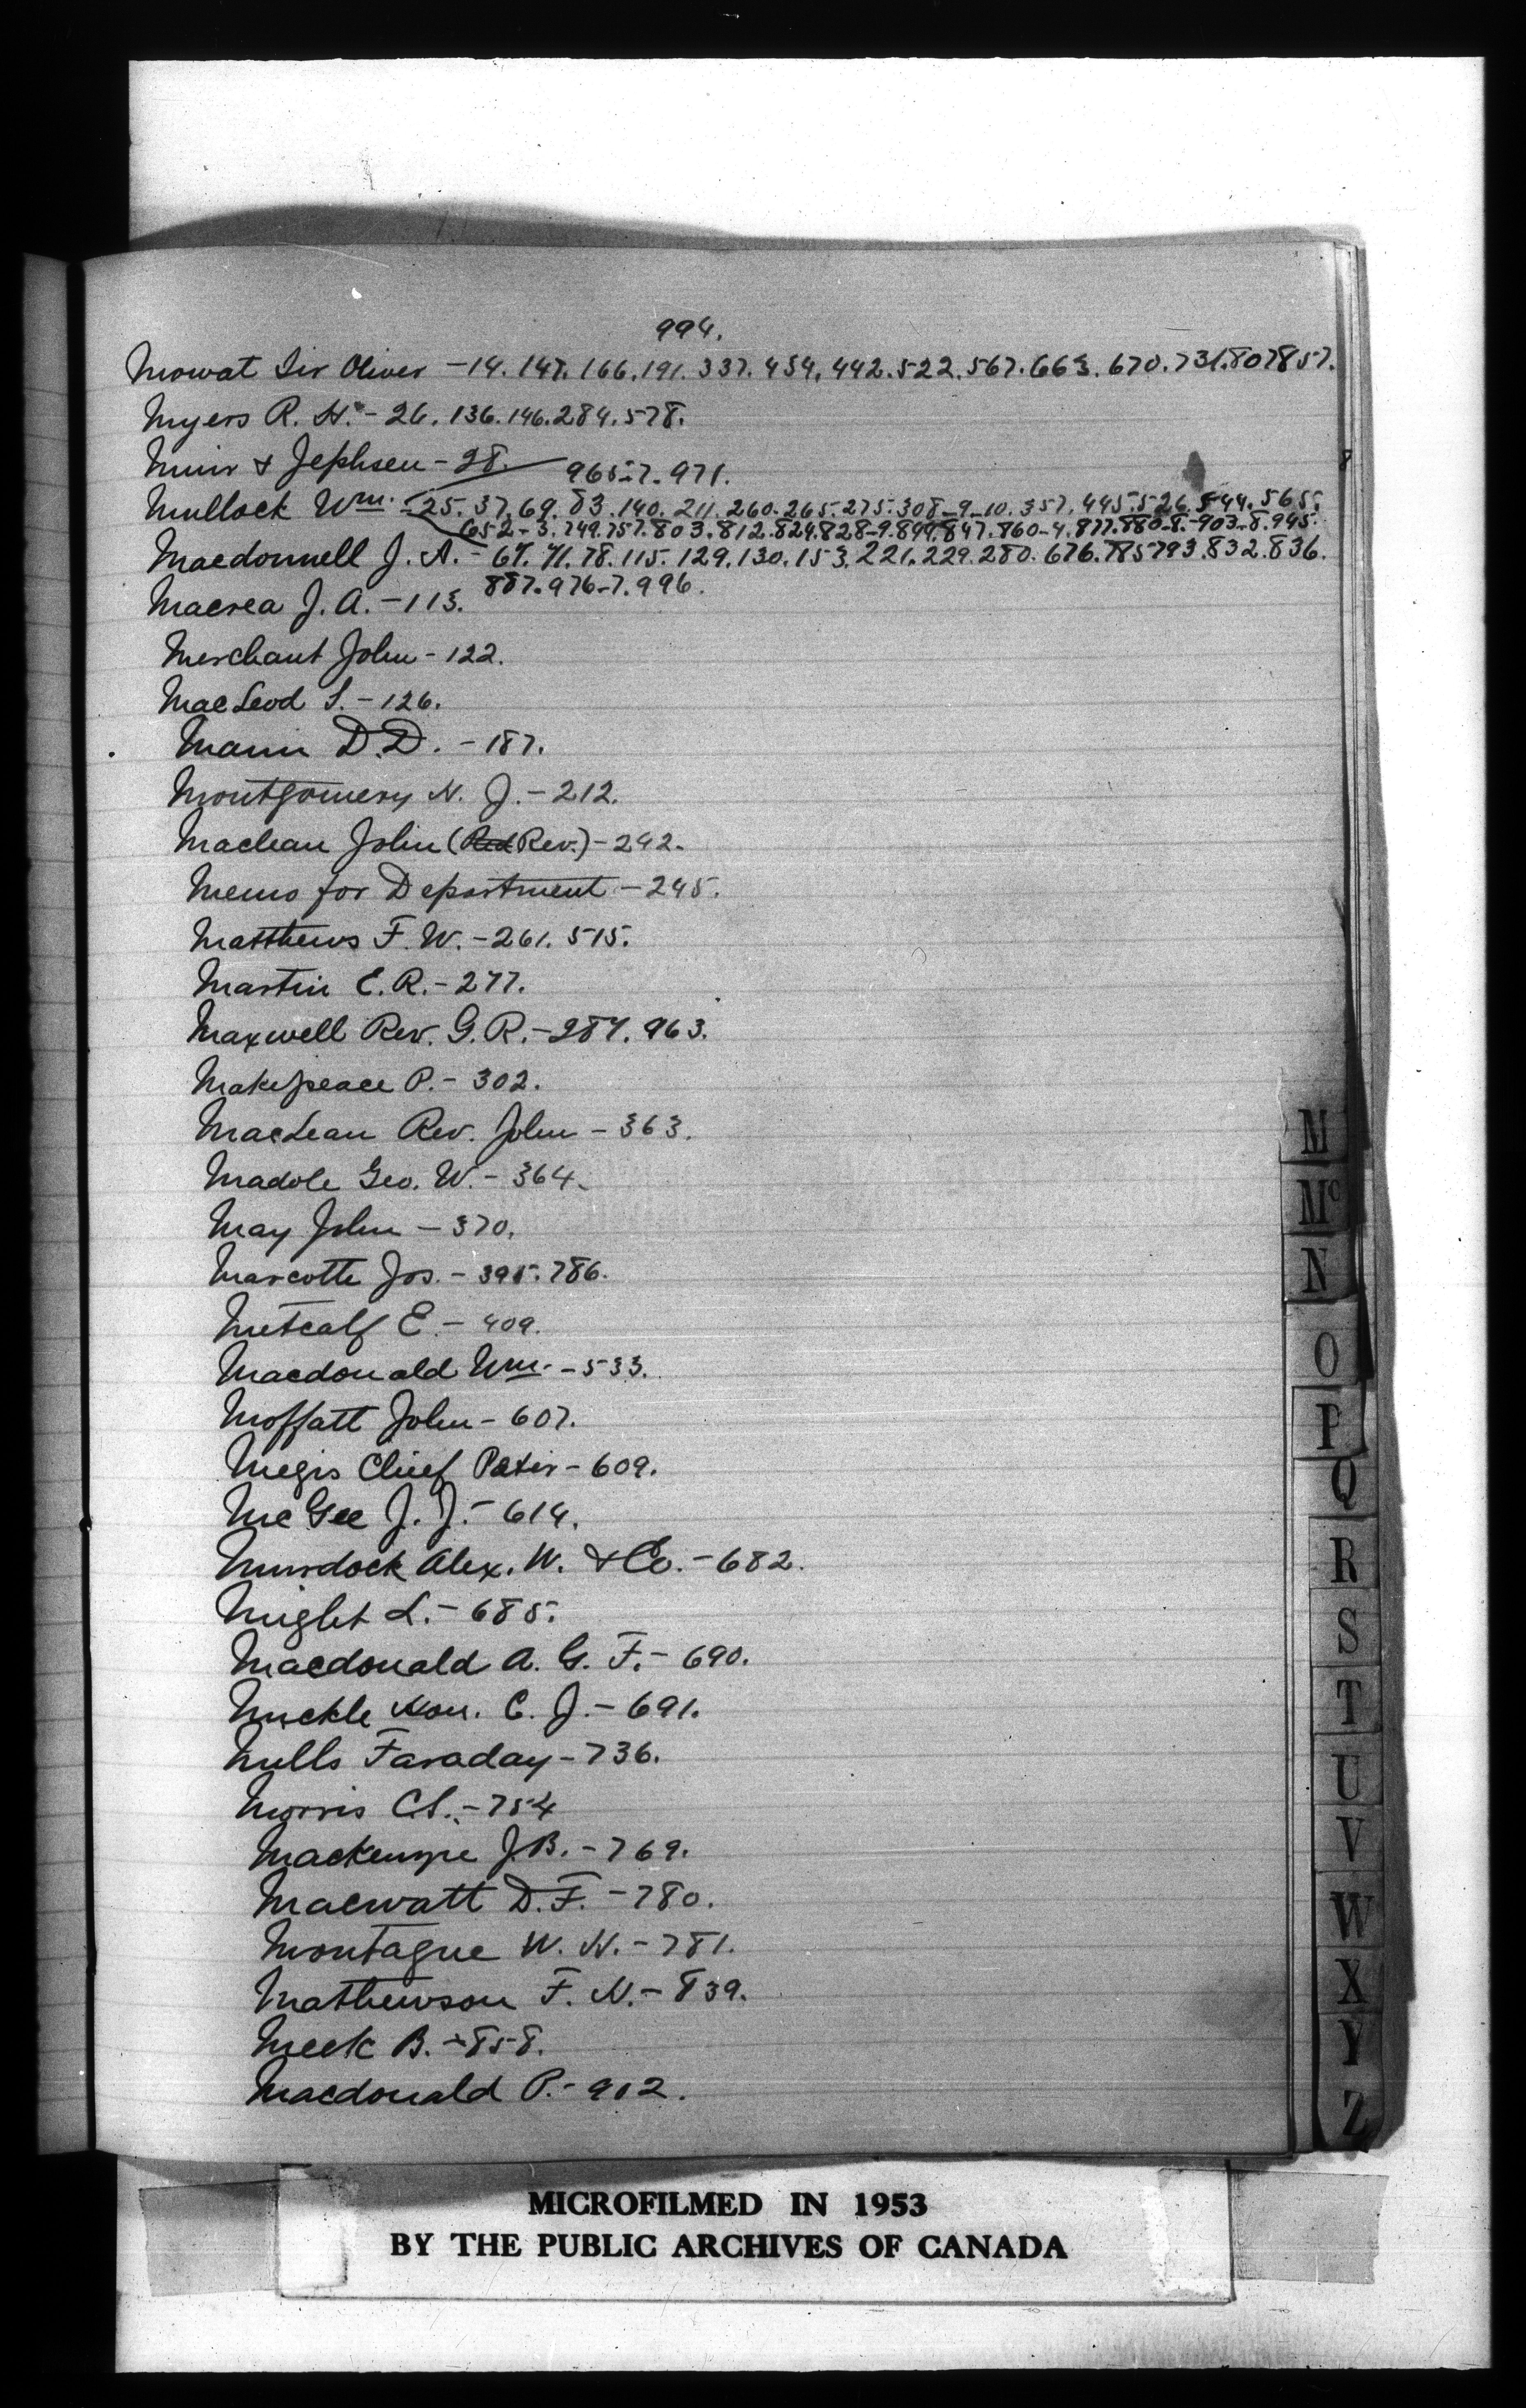 994.
Mowat Sir Oliver - 14. 147. 166. 191. 337. 454. 442. 522. 567. 663. 670. 731. 807 857.
Myers R. H. - 26. 136. 146. 284. 578.
Muir & Jephsen - 28.
965-7. 971.
Mullock Wm. - 25. 37. 69. 83. 140. 211. 260. 265. 275. 308-9-10. 357. 445. 526. 544. 565.
652-3. 749. 757. 803. 812. 824. 828-9. 844. 847. 860-4. 877. 880-8.-903-8. 945.
Macdonnell J. A. - 67. 71. 78. 115. 129. 130. 153. 221. 229. 280. 676. 785 793. 832. 836.
887. 976-7. 996.
Macrea J. A. - 113.
Merchant John - 122.
MacLeod S. - 126.
Mann D. D. - 187.
Montgomery N. J. - 212.
Maclean John (Rev.) - 242.
Memo for Department - 245.
Matthews F. W. - 261. 515.
Martin E. R. - 277.
Maxwell Rev. G. R. - 287. 963.
Makepeace P. - 302.
MacLean Rev. John - 363.
Madole Geo. W. - 364.
May John - 370.
Marcotte Jos. - 395. 786.
Metcalf E. - 409.
Macdonald Wm. - 533.
Moffatt John - 607.
Megis Chief Peter - 609.
McGee J. J. - 614.
Murdock Alex. W. & Co. - 682.
Might L. - 685.
Macdonald A. G. F. - 690.
Mickle Hon. C. J. - 691.
Mills Faraday - 736.
Morris C.S. - 754
Mackenzie J B. - 769.
Macwatt D. F. - 780.
Montague W. H. - 781.
Mathewson F. H. - 839.
Meek B. - 858.
Macdonald P. - 902.
M
Mc
N
O
P
Q
R
S
T
U
V
W
X
Y
Z
MICROFILMED IN 1953
BY THE PUBLIC ARCHIVES OF CANADA